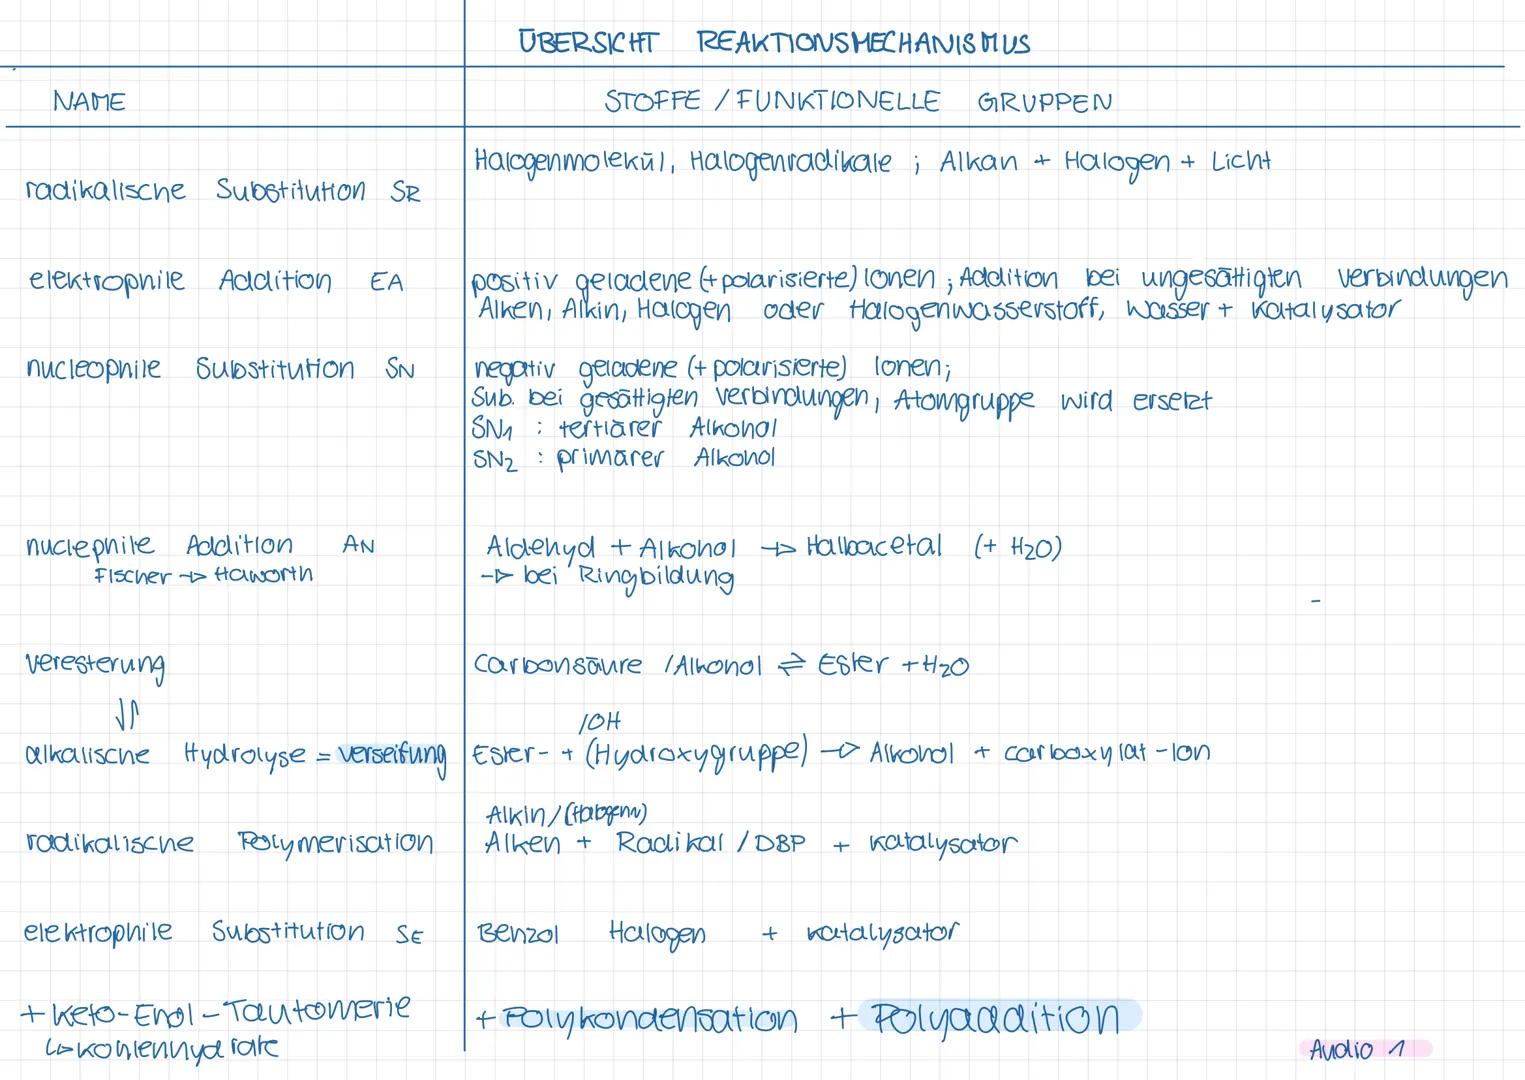 ÜBERSICHT REAKTIONSMECHANISMUS
NAME STOFFE / FUNKTIONELLE GRUPPEN
Halogenmolekül, Halogenradikale ; Alkan + Halogen + Licht
radikalische Substitution SR
elektrophile Addition EA
positiv geladene (+ polarisierte) Ionen ; Addition bei ungesättigten Verbindungen
Alken, Alkin, Halogen oder Halogenwasserstoff, Wasser + Katalysator
nucleophile Substitution SN
negativ geladene (+ polarisierte) Ionen;
Sub. bei gesättigten Verbindungen, Atomgruppe wird ersetzt
SN1 : tertiärer Alkohol
SN2 : primärer Alkohol
nuclephile Addition AN
Fischer → Haworth
Aldehyd + Alkohol → Halbacetal (+ H2O)
→ bei Ringbildung
Veresterung
Carbonsäure / Alkohol ⇌ Ester + H2O
⇃↾
/OH
alkalische Hydrolyse = Verseifung
Ester- + (Hydroxygruppe) → Alkohol + Carboxylat-Ion
Alkin/(Halogene)
radikalische Polymerisation
Alken + Radikal / DBP + Katalysator
elektrophile Substitution SE
Benzol Halogen + Katalysator
+ Keto-Enol-Tautomerie
↳ Kohlenhydrate
+ Polykondensation + Polyaddition
Audio 1